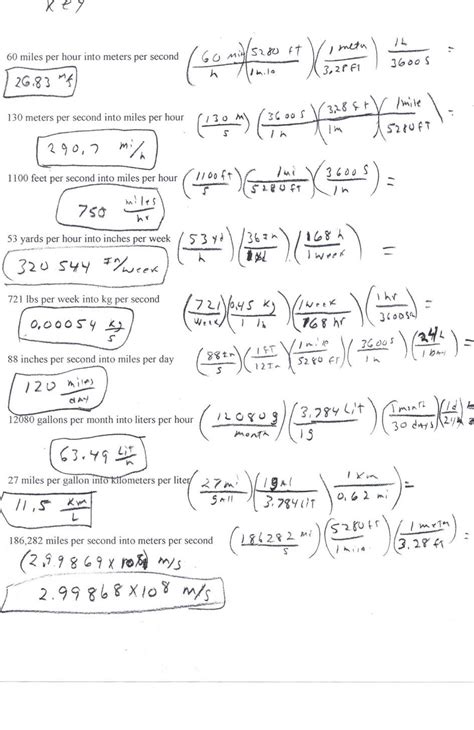 KEY
60 miles per hour into meters per second (60 mi/h)(5280 FT/1 mile)(1 meter/3.28 FT) 1h/3600 S =
26.83 m/s
130 meters per second into miles per hour (130 m/s)(3600 S/1h)(3.28 ft/1m)(1 mile/5280 FT)
290.7 mi/h
1100 feet per second into miles per hour (1100 ft/s)(1 mi/5280 FT)(3600 S/1h) =
750 miles/hr
53 yards per hour into inches per week (53 yd/h)(36 In/1 yd)(168 h/1 week) =
320 544 In/week
721 lbs per week into kg per second (721/week)(0.45 kg/1 lb)(1 week/168 hr)(1 hr/3600 s) =
0.00054 kg/s
88 inches per second into miles per day (88 in/s)(1 FT/12 In)(1 mile/5280 ft)(3600 S/1h)(24 h/1 Day) =
120 miles/day
12080 gallons per month into liters per hour (12080 g/month)(3.784 Lit/1g)(1 month/30 days)(1d/24h) =
63.49 Lit/h
27 miles per gallon into kilometers per liter (27 mi/gall)(1 gal/3.784 Lit)(1 Km/0.62 mi) =
11.5 Km/L
186,282 miles per second into meters per second (186282 mi/s)(5280 ft/1 mile)(1 meter/3.28 ft)
(2.99869 X 10 8) m/s
2.99868 X 10 8 m/s